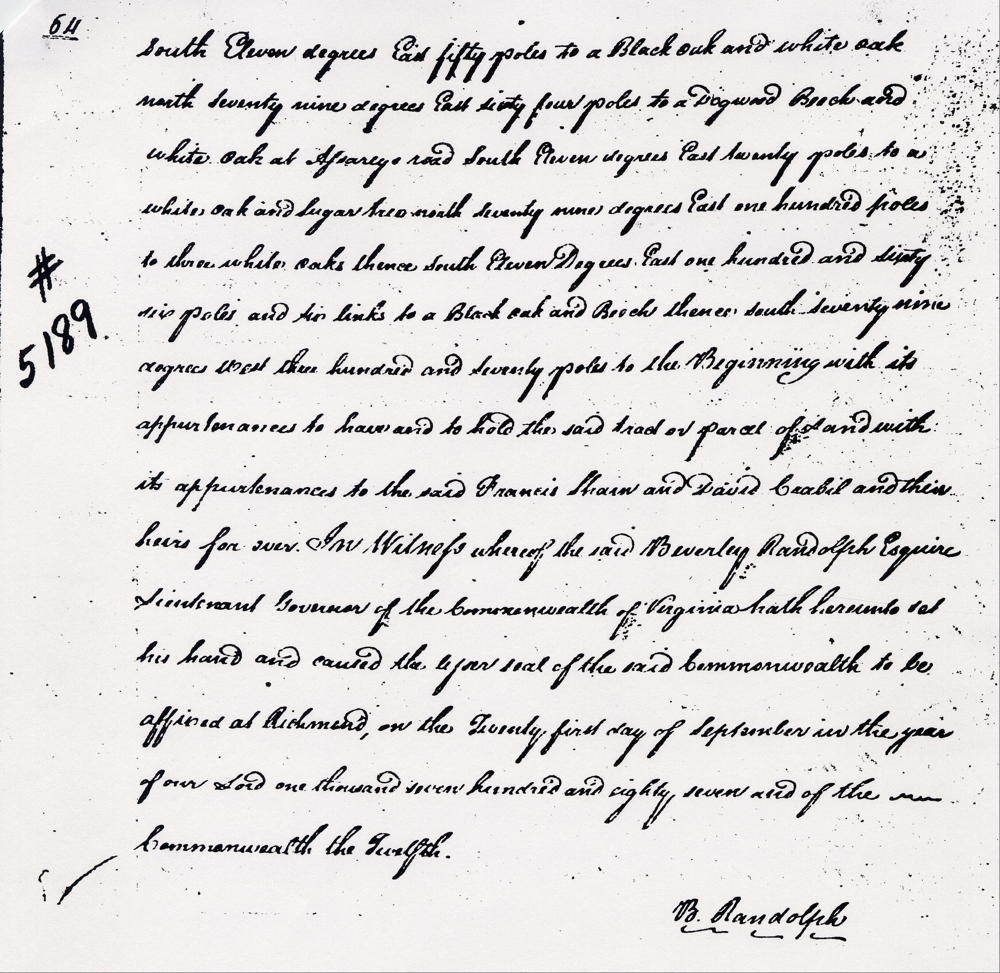 64
South Eleven degrees East fifty poles to a Black oak and white oak
north Seventy nine degrees East sixty four poles to a Dogwood Beech and
white oak at road South Eleven degrees East twenty poles to a
white oak and Sugar tree north Seventy nine degrees East one hundred poles
to three white oaks thence South Eleven Degrees East one hundred and sixty
six poles and six links to a Black oak and Beech thence south seventy nine
degrees West three hundred and Seventy poles to the Beginning with its
appurtenances to have and to hold the said tract or parcel of Land with
its appurtenances to the said Francis and David and their
heirs for ever. In Witness whereof the said Beverley Randolph Esquire
Lieutenant Governor of the Commonwealth of Virginia hath hereunto set
his hand and caused the lesser seal of the said Commonwealth to be
affixed at Richmond, on the Twenty first day of September in the year
of our Lord one thousand seven hundred and eighty seven and of the
Commonwealth the Twelfth.
B. Randolph
# 5189.